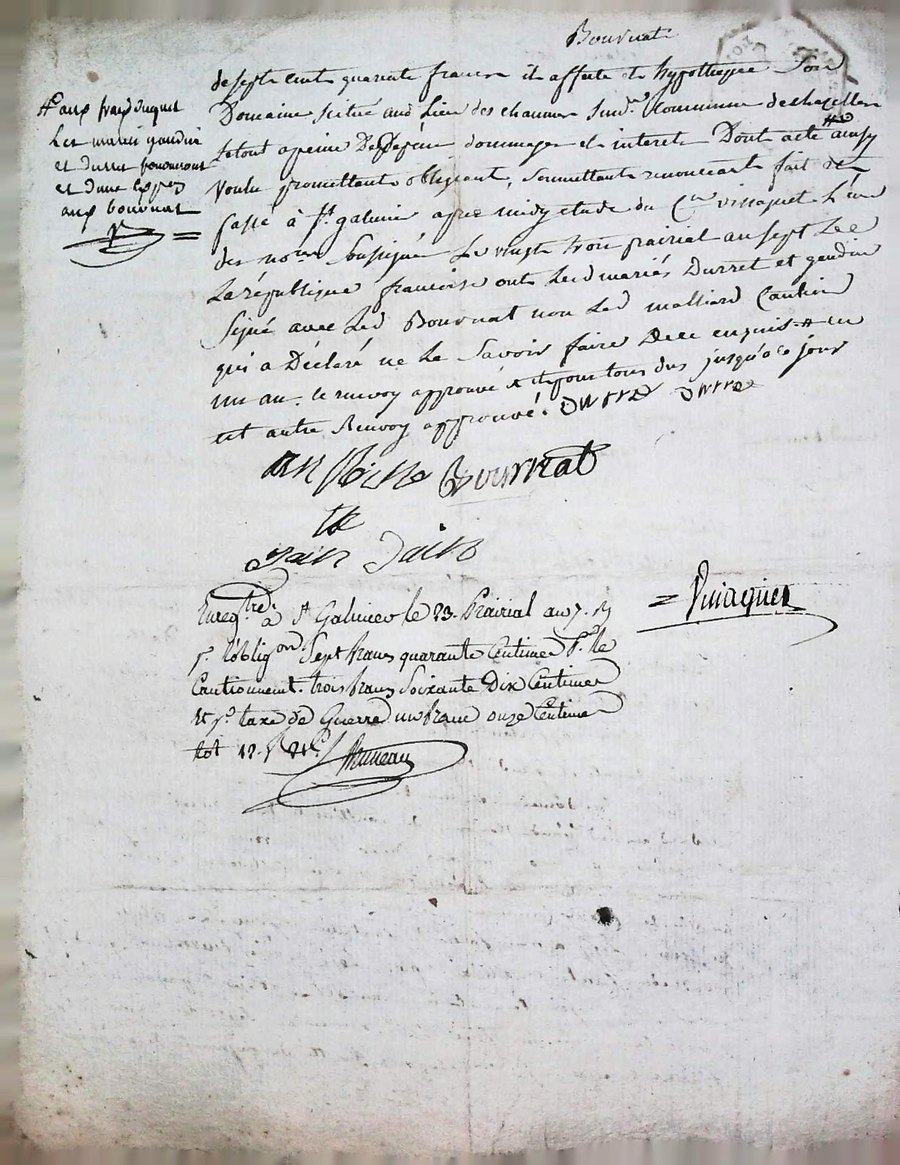 Bournat
de sept cents quarante francs il affecte et hypotheque Son
Domaine scitué aud. Lieu des chaumes Susd. Commune de chazelles
Le tout a peine De Depens dommages et interets Dont acte # ainsy
Voulu promettant obligeant, Soumettant renonceant fait et
passé à St. galmier apres midy etude du Cen vinaquet L'un
des nores Soussigné Le vingt trois prairial an sept de
La république francoise ont Lesd mariés Durret et gaudin
Signé avec Led Bournat non Led malliard Caution
qui a Déclaré ne Le Savoir faire De ce enquis # en
un an. le renvoy approuvé pour tous dus jusqu'a ce jour
cet autre Renvoy approuvé. Durre Durre
# aux frais duquel
Les mariés gaudin
et durret
et d'une exp
aux bournat
Bournat
Enregtré à St Galmier le 23. Prairial an 7.
pr. l'obligon. Sept francs quarante Centimes pr. le
Cautionnent. trois francs Soixante Dix Centimes
et pr. taxe de Guerre un franc onze Centimes
tot 12. f 21 c.